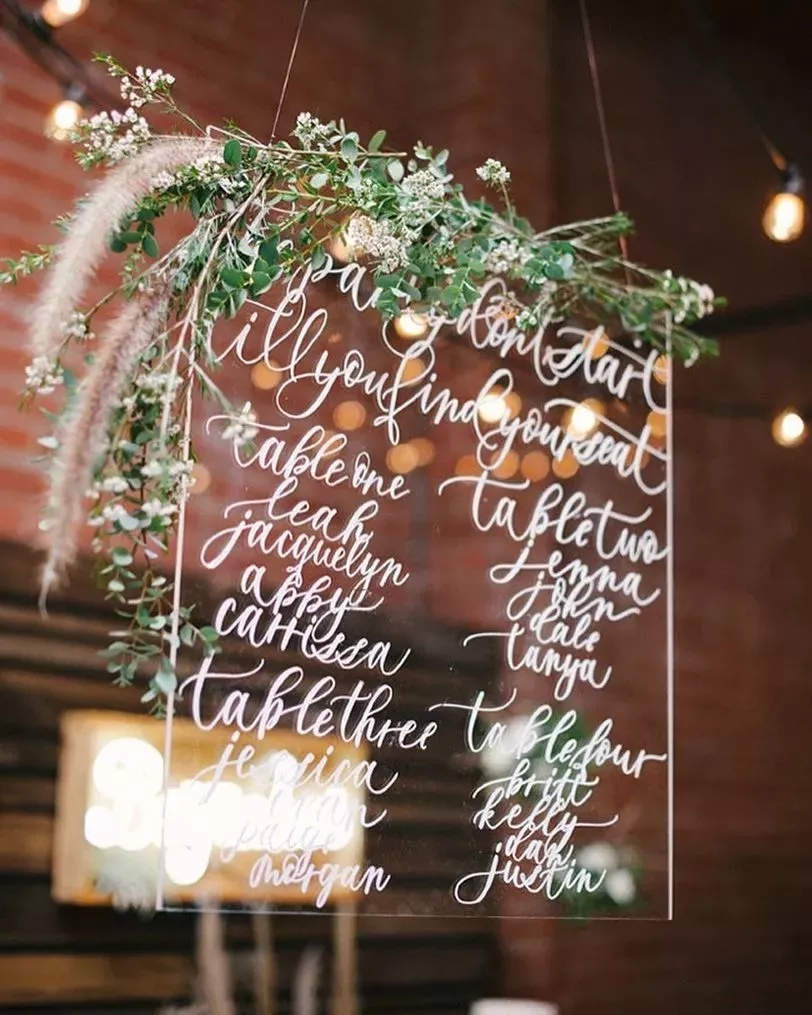 party don't start
till you find your seat
table one
leah
jacquelyn
abby
carrissa
table two
jenna
john
dale
tanya
table three
jessica
paige
morgan
table four
britt
kelly
dan
justin